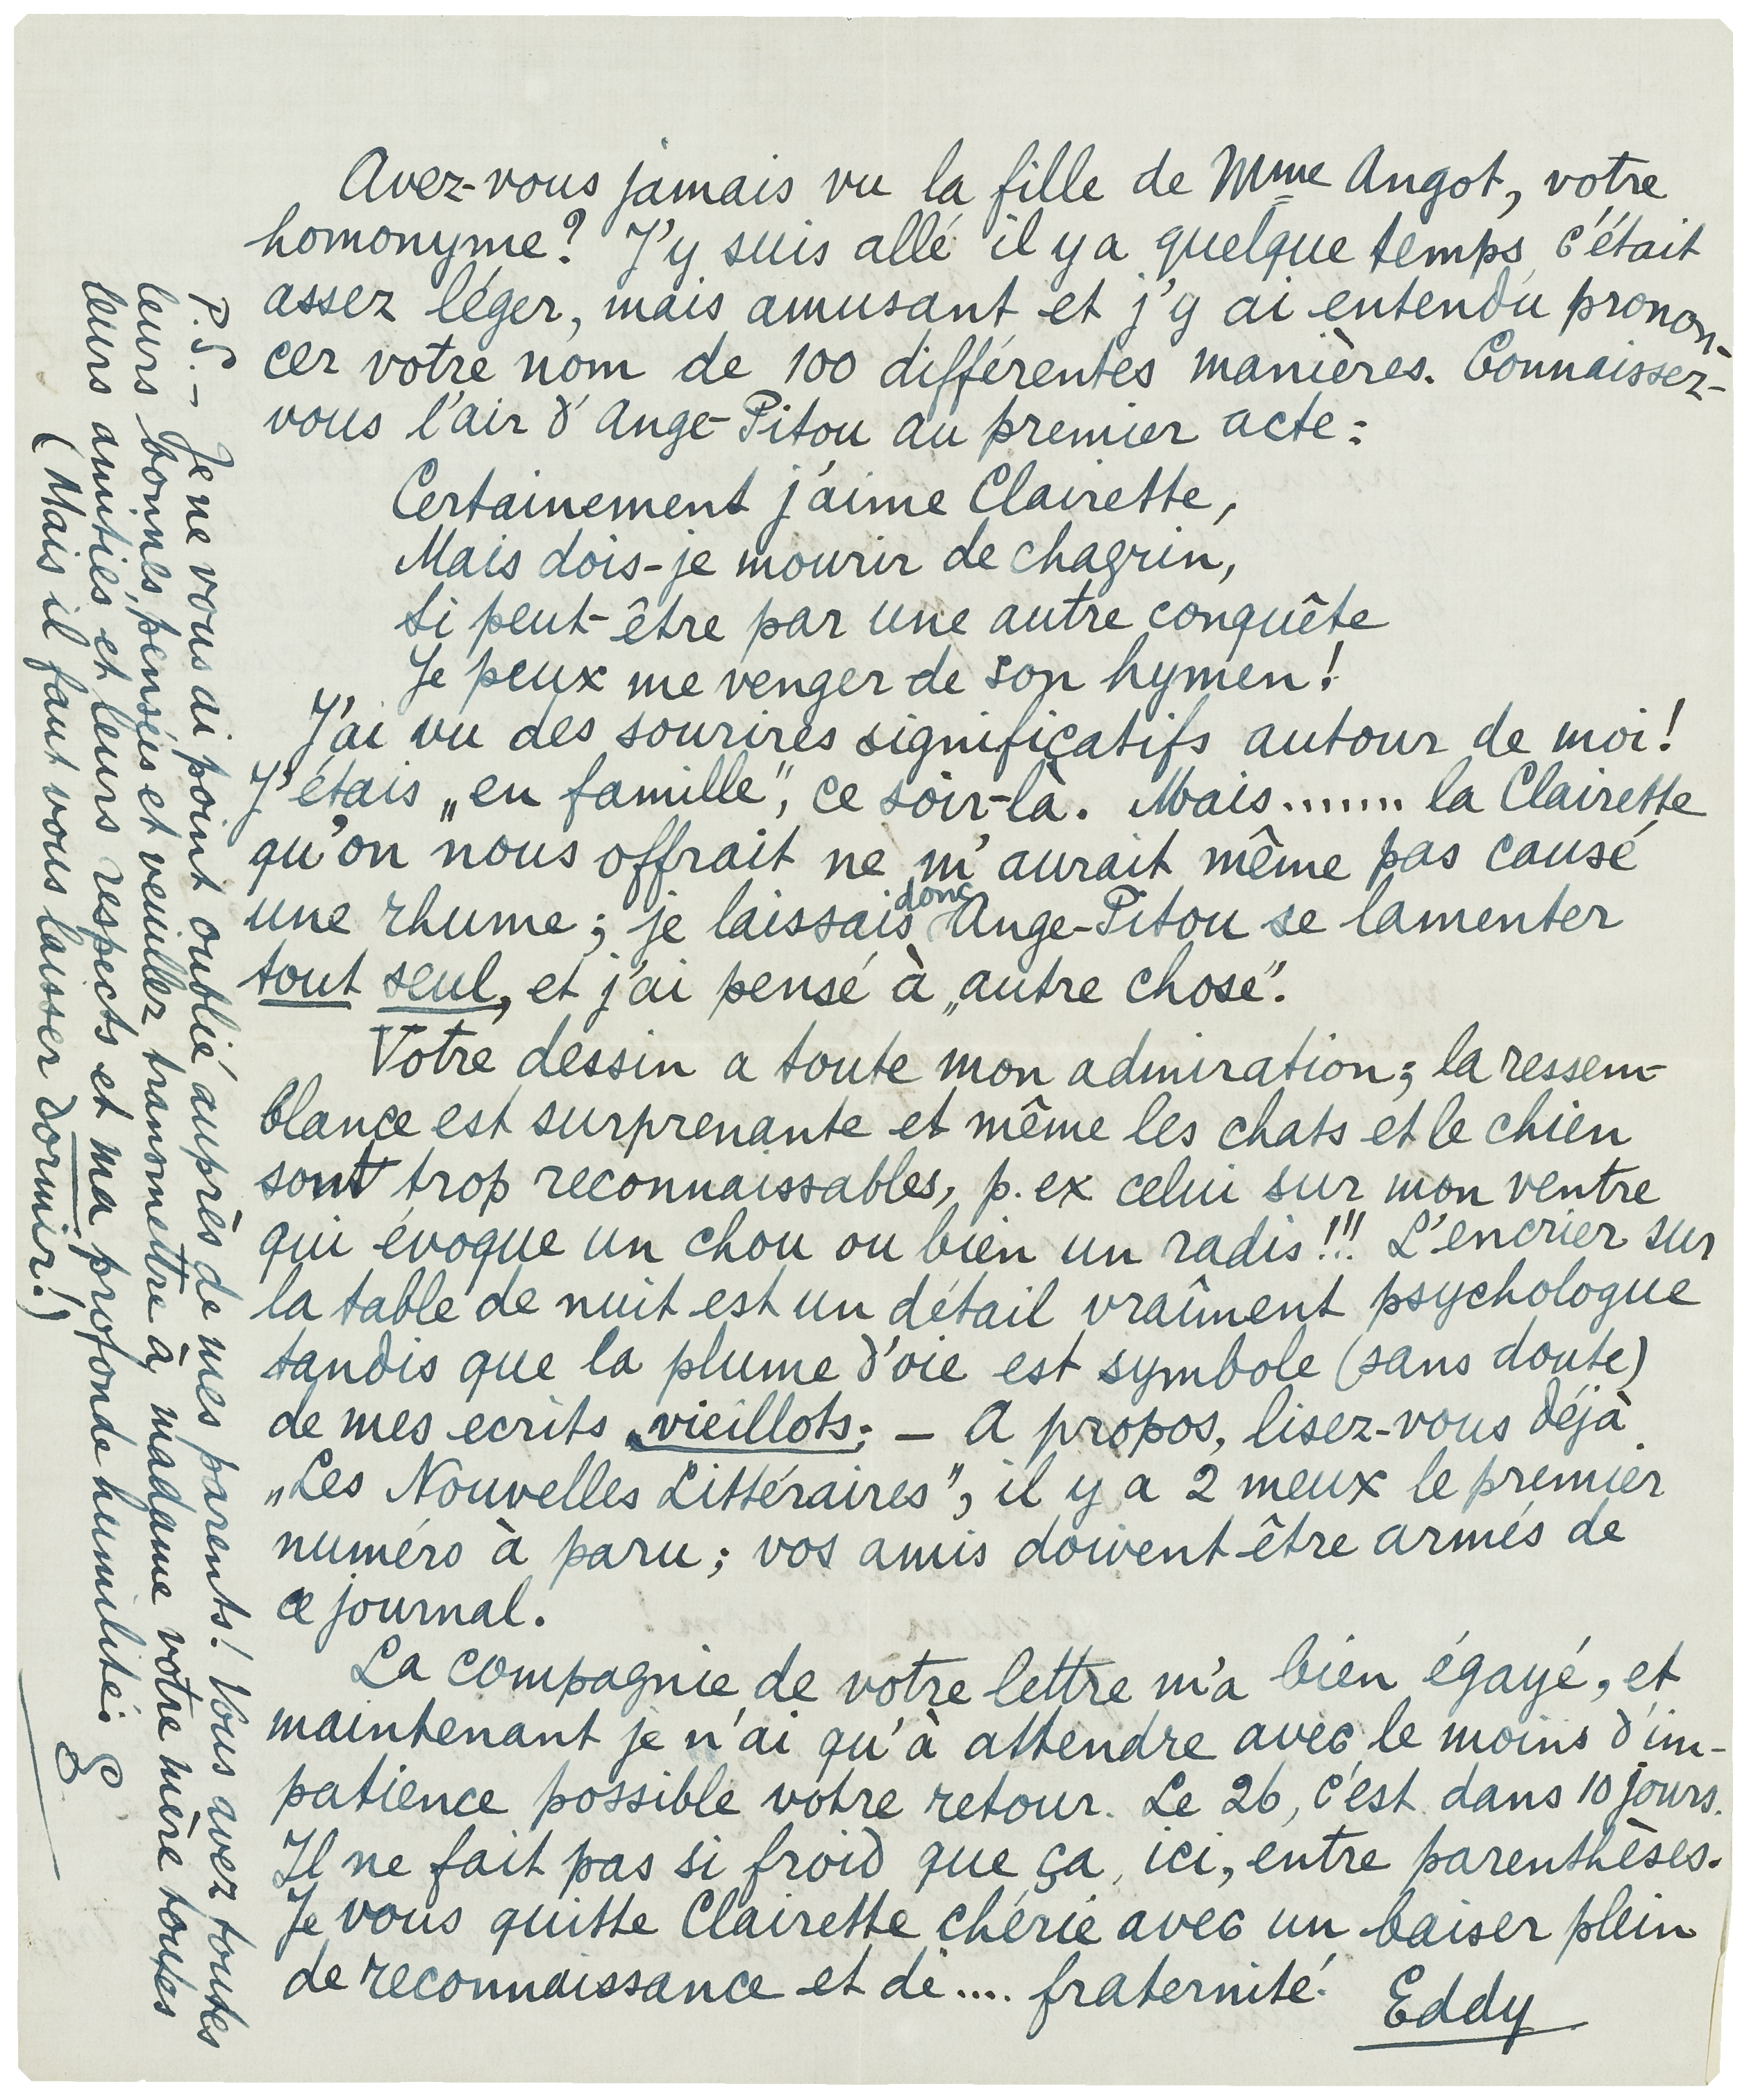 Avez-vous jamais vu la fille de Mme Angot, votre
homonyme? J'y suis allé il y a quelque temps, c'était
assez léger, mais amusant et j'y ai entendu pronon-
cer votre nom de 100 différentes manières. Connaissez-
vous l'air d'Ange-Pitou au premier acte:
Certainement j'aime Clairette,
Mais dois-je mourir de chagrin,
Si peut-être par une autre conquête
Je peux me venger de son hymen!
J'ai vu des sourires significatifs autour de moi!
J'étais „en famille", ce soir-là. Mais....... la Clairette
qu'on nous offrait ne m'aurait même pas causé
une rhume; je laissais donc Ange-Pitou se lamenter
tout seul, et j'ai pensé à „autre chose".
Votre dessin a toute mon admiration; la ressem-
blance est surprenante et même les chats et le chien
sont trop reconnaissables, p. ex celui sur mon ventre
qui évoque un chou ou bien un radis!!! L'encrier sur
la table de nuit est un détail vraîment psychologue
tandis que la plume d'oie est symbole (sans doute)
de mes ecrits vieillots; — A propos, lisez-vous déjà
„Les Nouvelles Littéraires", il y a 2 meux le premier
numéro à paru; vos amis doivent être armés de
ce journal.
La compagnie de votre lettre m'a bien égayé, et
maintenant je n'ai qu'à attendre avec le moins d'im-
patience possible votre retour. Le 26, c'est dans 10 jours.
Il ne fait pas si froid que ça, ici, entre parenthèses.
Je vous quitte Clairette chérie avec un baiser plein
de reconnaissance et de.... fraternité.
Eddy
P.S. — Je ne vous ai point oublié auprès de mes parents! Vous avez toutes
leurs bonnes pensées et veuillez transmettre à madame votre mère toutes
leurs amitiés et leurs respects et ma profonde humilité. E.
(Mais il faut vous laisser dormir!)